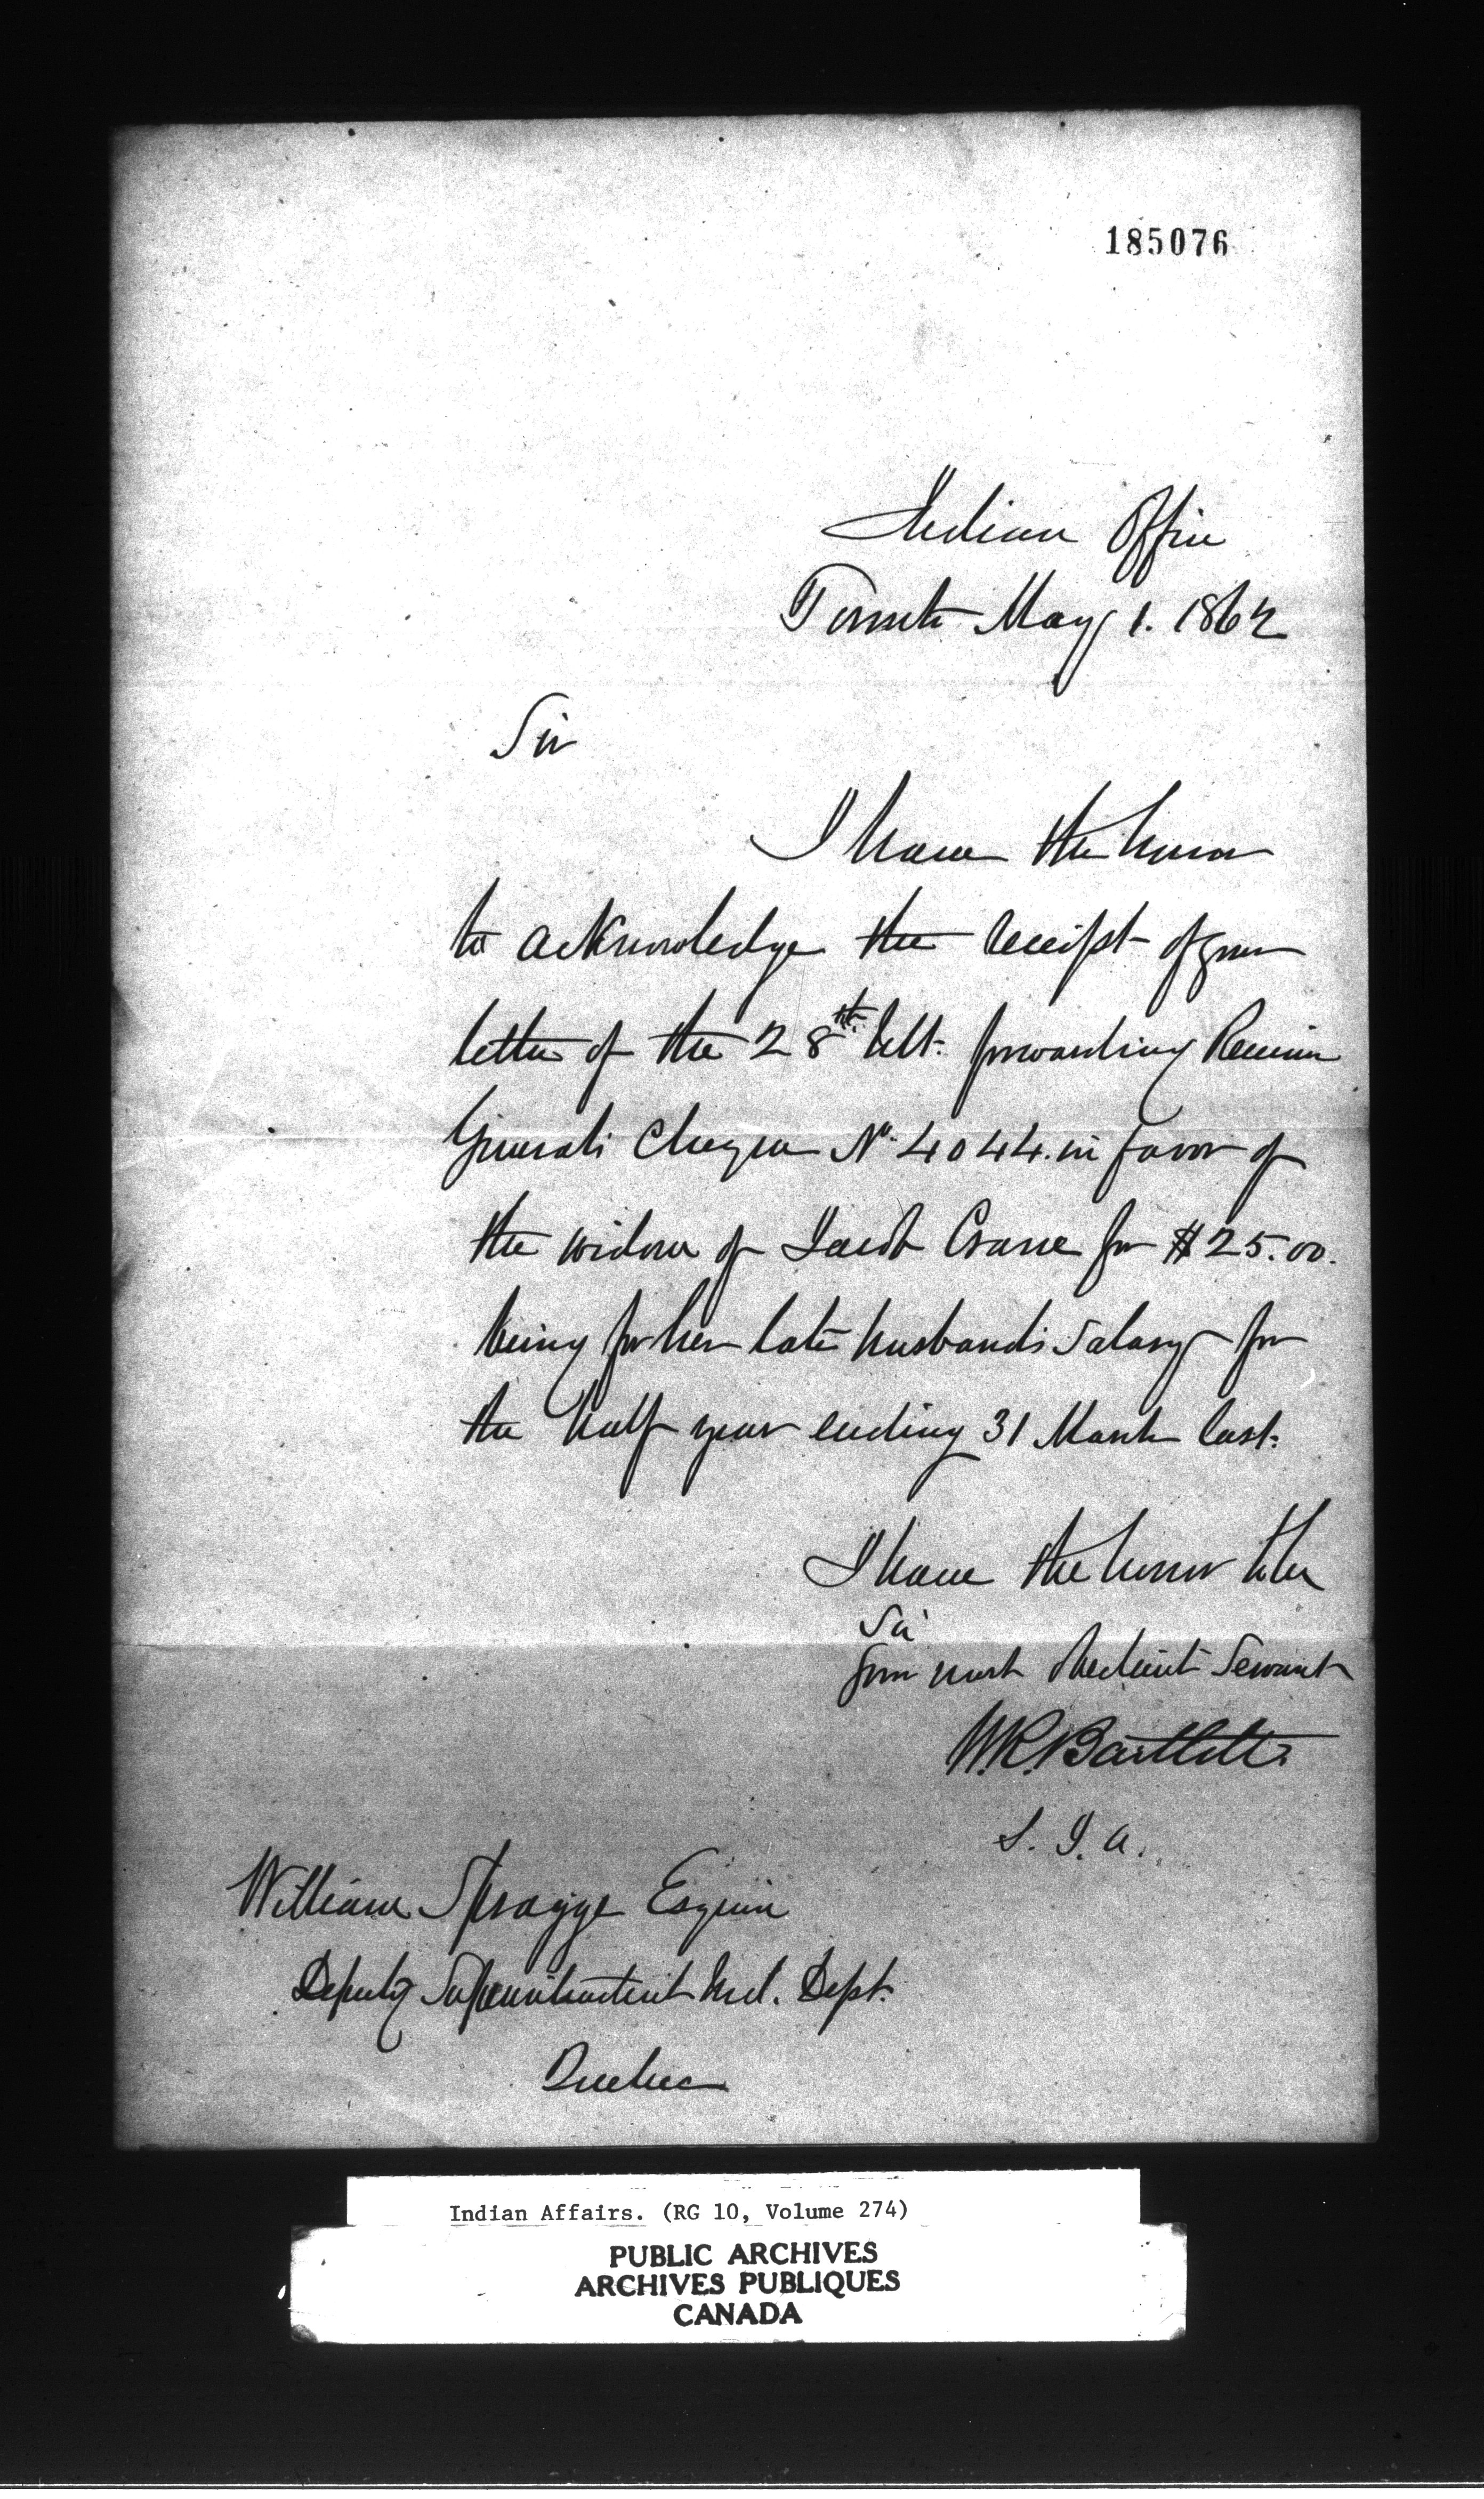 185076
Indian Office
Toronto May 1. 1862
Sir
I have the honor
to acknowledge the receipt of your
letter of the 28th Ult. forwarding Receiver
Generals Cheque No. 4044. in favor of
the widow of Jacob Crane for $25.00.
being for her late husbands salary for
the half year ending 31 March last.
I have the honor to be
Sir
Your most obedient Servant
W.R. Bartlett
S. I. A.
William Spragge Esquire
Deputy Superintendent Ind. Dept.
Quebec
Indian Affairs. (RG 10, Volume 274)
PUBLIC ARCHIVES
ARCHIVES PUBLIQUES
CANADA